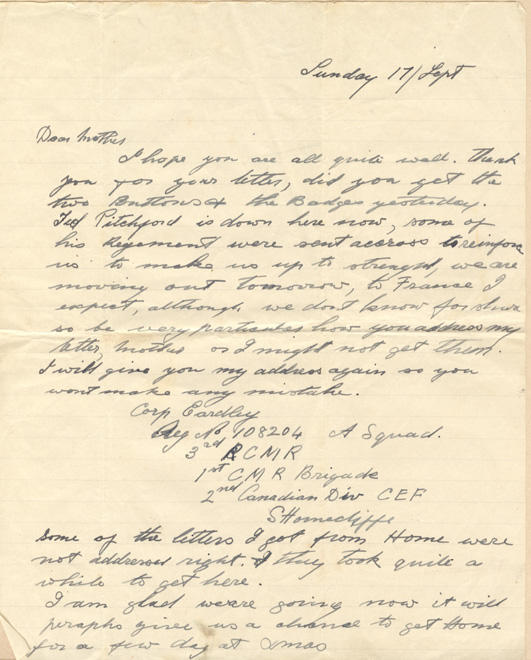 Sunday 17/Sept
Dear Mother
I hope you are all quite well. Thank
you for your letter, did you get the
two Buttons & the Badges yesterday.
Ted Pitchford is down here now, some of
his Regement were sent accross to reinforce
us to make us up to strenght, we are
moving out tomorrow, to France I
expect, although we don't know for shure
so be very particular how you address my
letter, Mother or I might not get them.
I will give you my address again so you
wont make any mistake.
Corp Eardley
Reg No 108204 A Squad.
3rd CMR
1st CMR Brigade
2nd Canadian Div CEF
SHornecliffe
Some of the letters I got from Home were
not addressed right. & they took quite a
while to get here.
I am glad weare going now it will
peraphs give us a chance to get Home
for a few day at Xmas